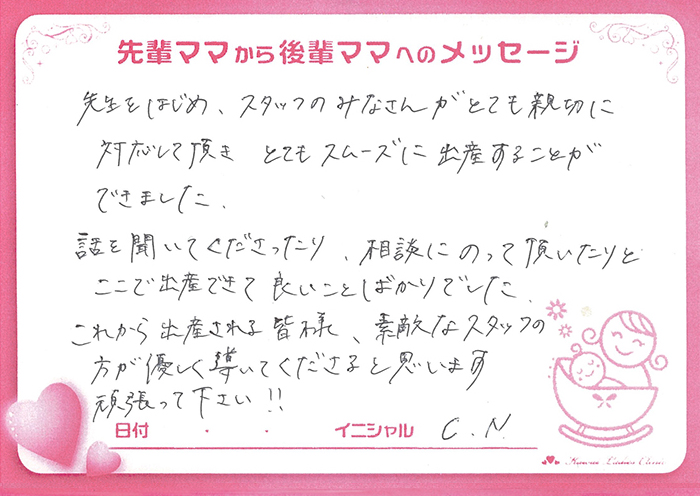 先輩ママから後輩ママへのメッセージ
先生をはじめ、スタッフのみなさんがとても親切に
対応して頂き とてもスムーズに出産することが
できました.
話を聞いてくださったり、相談にのって頂いたりと
ここで出産できて良いことばかりでした.
これから出産される皆様、素敵なスタッフの
方が優しく導いてくださると思います
頑張って下さい!!
日付 ・ ・ イニシャル C.N.